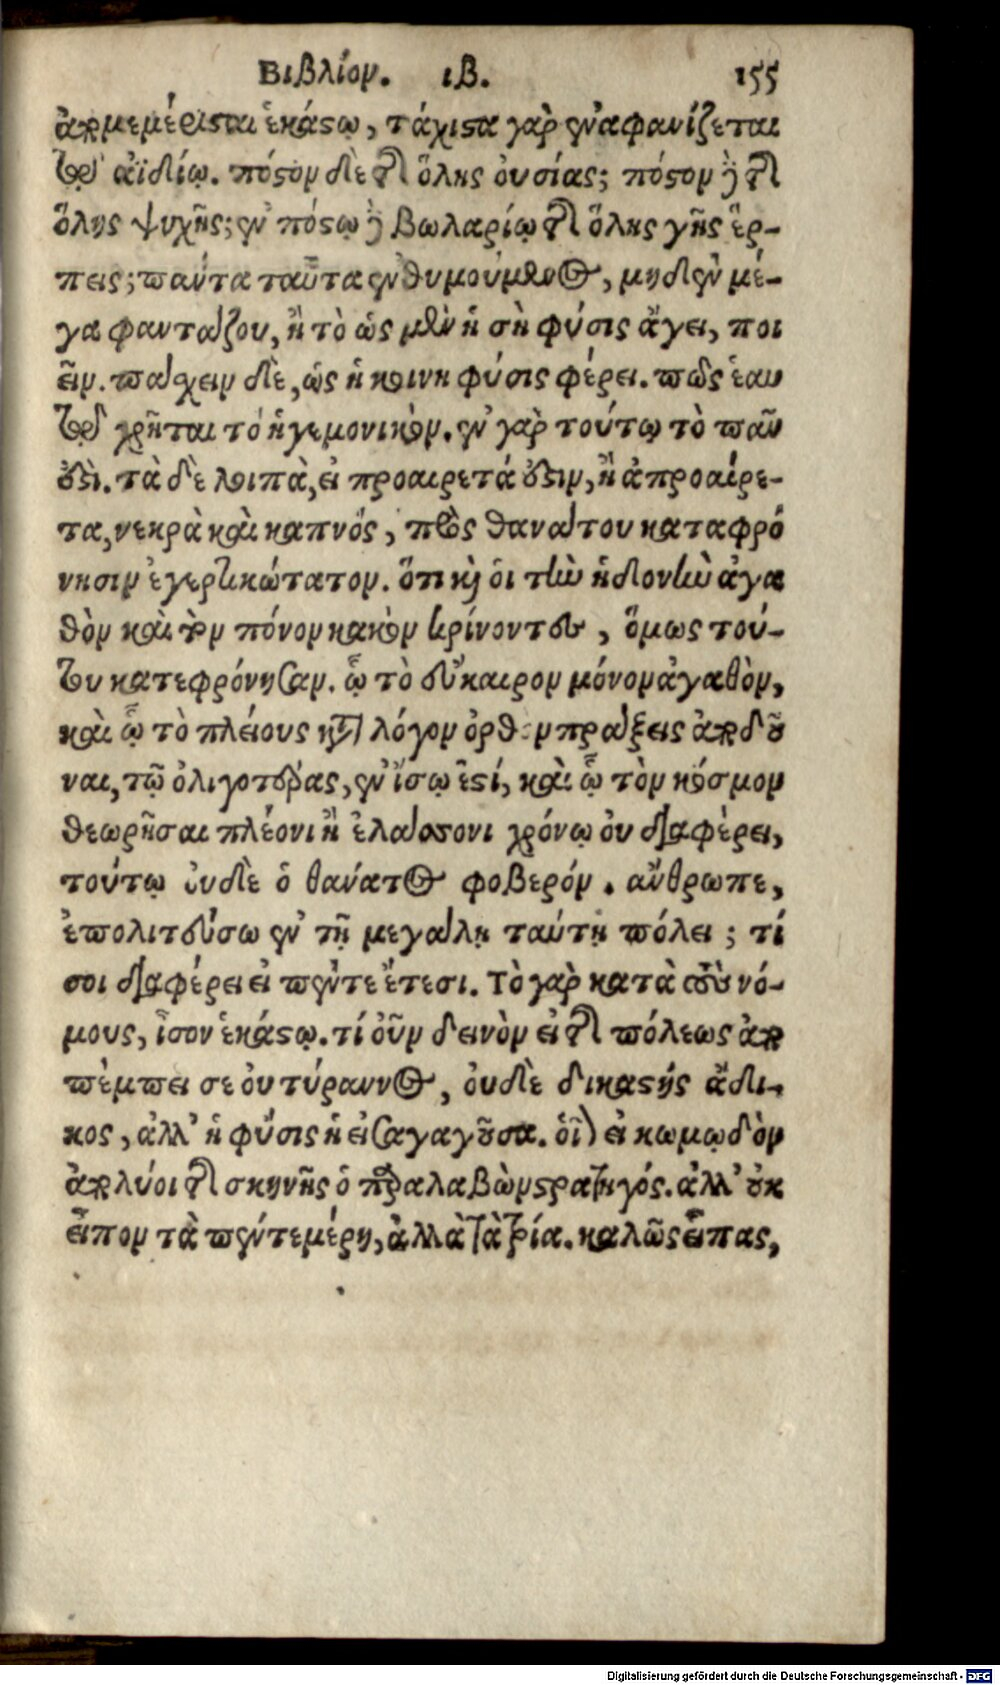 Βιβλίον. ιβ. 155
ἀπομεμέρισται ἑκάστῳ, τάχιστα γὰρ ἐναφανίζεται
τῷ ἀϊδίῳ. πόστον δὲ τῆς ὅλης οὐσίας; πόστον δὲ τῆς
ὅλης ψυχῆς; ἐν πόστῳ δὲ βωλαρίῳ τῆς ὅλης γῆς ἕρ-
πεις; πάντα ταῦτα ἐνθυμούμενος, μηδὲν μέ-
γα φαντάζου, ἢ τὸ ὡς μὲν ἡ σὴ φύσις ἄγει, ποι
εῖν. πάσχειν δὲ, ὡς ἡ κοινὴ φύσις φέρει. πῶς ἑαυ
τῷ χρῆται τὸ ἡγεμονικὸν. ἐν γὰρ τούτῳ τὸ πᾶν
ἐστὶ. τὰ δὲ λοιπὰ, εἰ προαιρετά ἐστιν, ἢ ἀπροαίρε-
τα, νεκρὰ καὶ καπνός, πρὸς θανάτου καταφρό
νησιν ἐγερτικώτατον. ὅτι καὶ οἱ τὴν ἡδονὴν ἀγα
θὸν καὶ τὸν πόνον κακὸν κρίνοντες, ὅμως τού-
του κατεφρόνησαν. ᾧ τὸ εὔκαιρον μόνον ἀγαθὸν,
καὶ ᾧ τὸ πλείους κατὰ λόγον ὀρθὸν πράξεις ἀποδοῦ
ναι, τῷ ὀλιγοτέρας, ἐν ἴσῳ ἐστί, καὶ ᾧ τὸν κόσμον
θεωρῆσαι πλέονι ἢ ἐλάσσονι χρόνῳ οὐ διαφέρει,
τούτῳ οὐδὲ ὁ θάνατος φοβερόν. ἄνθρωπε,
ἐπολιτεύσω ἐν τῇ μεγάλῃ ταύτῃ πόλει; τί
σοι διαφέρει εἰ πέντε ἔτεσι. Τὸ γὰρ κατὰ τοὺς νό-
μους, ἶσον ἑκάστῳ. τί οὖν δεινὸν εἰ τῆς πόλεως ἀπο
πέμπει σε οὐ τύραννος, οὐδὲ δικαστής ἄδι-
κος, ἀλλ' ἡ φύσις ἡ εἰσαγαγοῦσα. οἷον εἰ κωμῳδὸν
ἀπολύοι τῆς σκηνῆς ὁ παραλαβὼν στρατηγός. ἀλλ' οὐκ
εἶπον τὰ πέντε μέρη, ἀλλὰ τὰ τρία. καλῶς εἶπας,
Digitalisierung gefördert durch die Deutsche Forschungsgemeinschaft - DFG